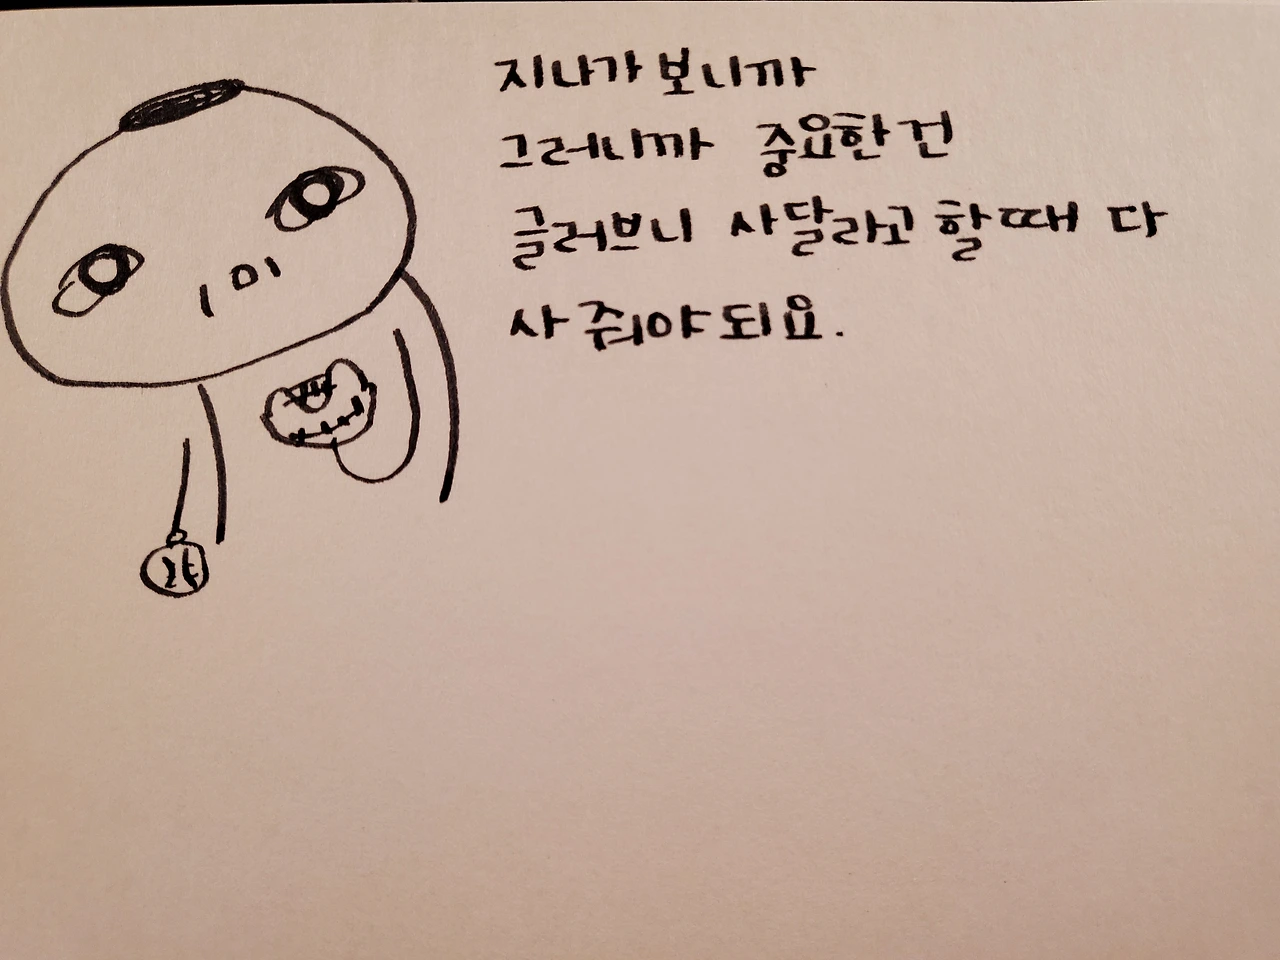 지나가 보니까
그러니까 중요한 건
글러브니 사달라고 할때 다
사 줘야 되요.